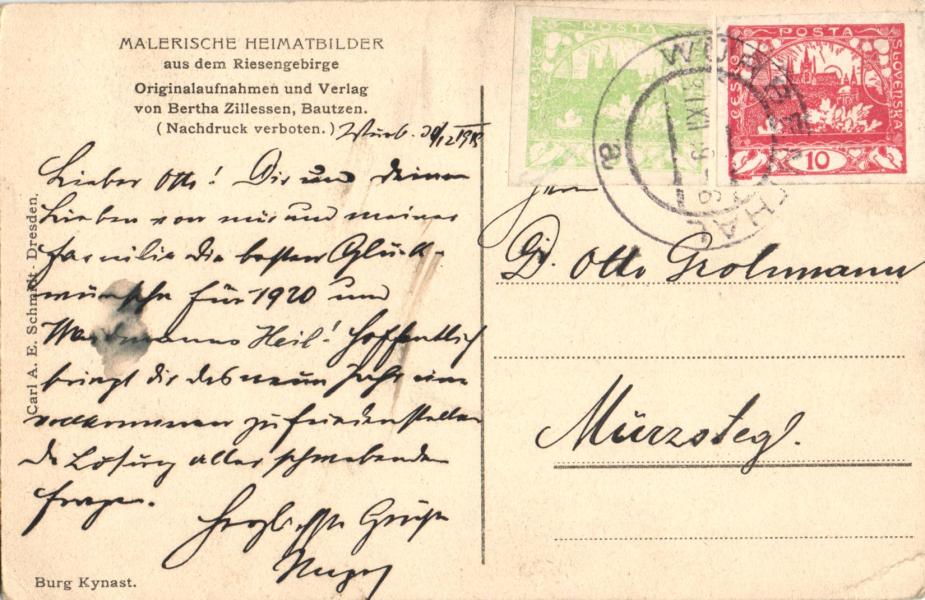 MALERISCHE HEIMATBILDER
aus dem Riesengebirge
Originalaufnahmen und Verlag
von Bertha Zillessen, Bautzen.
(Nachdruck verboten.)
Lieber Otto! Dir und deinen
Lieben von mir und meiner
Familie die besten Glück-
wünsche für 1920 und
Weidmanns Heil! Hoffentlich
bringt dir das neue Jahr eine
vollkommen zufriedenstellende
Lösung aller schwebenden
Fragen.
Herzlichste Grüße
Burg Kynast.
Carl A. E. Schmidt · Dresden.
POSTA
ČESKO
POSTA
ČESKO
SLOVENSKA
10
a
Herrn
Dr. Otto Grohmann
Mürzstegl.